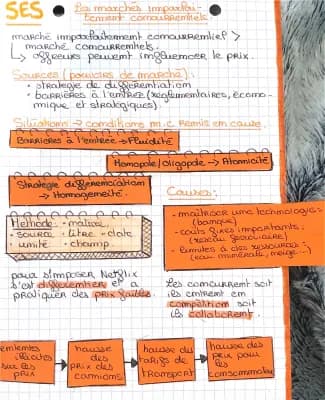 SES
Les marchés imparfai-
tement concurrentiels
marché imparfaitement concurrentiel >
marché concurrentiels.
↳ offreurs peuvent influencer le prix.
Sources (pouvoirs de marché) :
• stratégie de différentiation
• barrières à l'entrée (réglementaires, écono-
mique et stratégiques)
Situations → conditions m.c remis en cause.
Barrières à l'entrée → Fluidité
Monopole/oligopole → Atomicité
Stratégie différenciation
→ Homogénéité.
Causes :
- maitriser une technologie
(banque)
- coûts fixes importants
(réseau ferroviaire)
- limités à des ressources
(eau minérale, neige...)
Méthode • nature
• source • titre • date
• unité • champ
pour s'imposer Netflix
s'est différentier et a
pratiquer des prix faibles.
Les concurrent soit
ils entrent en
compétition soit
ils collaborent.
ententes
illicites
sur les
prix
hausse
des
prix des
camions
hausse du
tarifs de
transport
hausse des
prix pour
les
consommateur